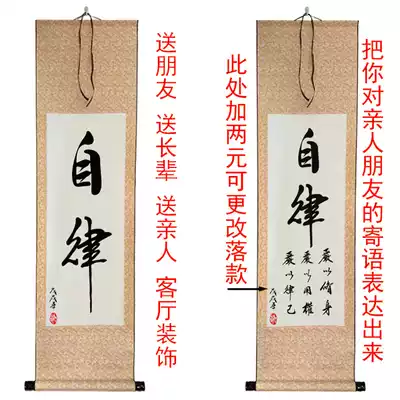 自律
送朋友 送长辈 送亲人 客厅装饰
此处加两元可更改落款
自律
嚴以脩身
嚴以用權
嚴以律己
把你对亲人朋友的寄语表达出来